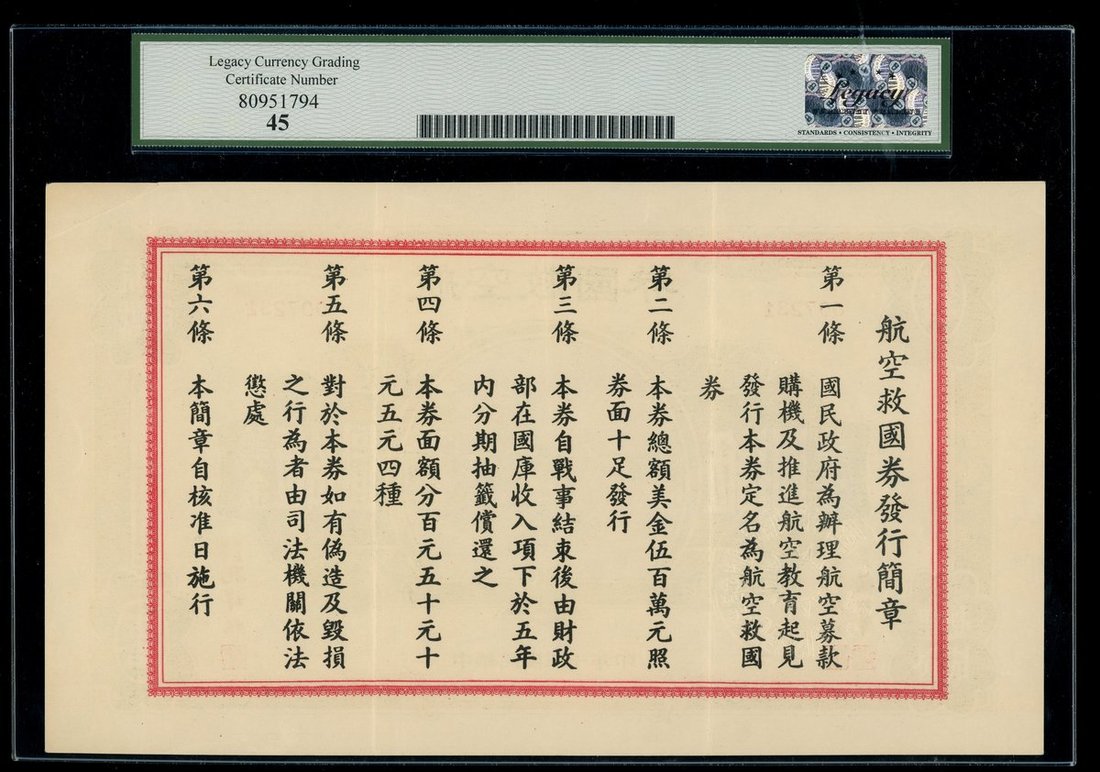 Legacy Currency Grading
Certificate Number
80951794
45
Legacy
STANDARDS • CONSISTENCY • INTEGRITY
航空救國券發行簡章
第一條 國民政府為辦理航空募款
購機及推進航空教育起見
發行本券定名為航空救國
券
第二條 本券總額美金伍百萬元照
券面十足發行
第三條 本券自戰事結束後由財政
部在國庫收入項下於五年
內分期抽籤償還之
第四條 本券面額分百元五十元十
元五元四種
第五條 對於本券如有偽造及毀損
之行為者由司法機關依法
懲處
第六條 本簡章自核准日施行